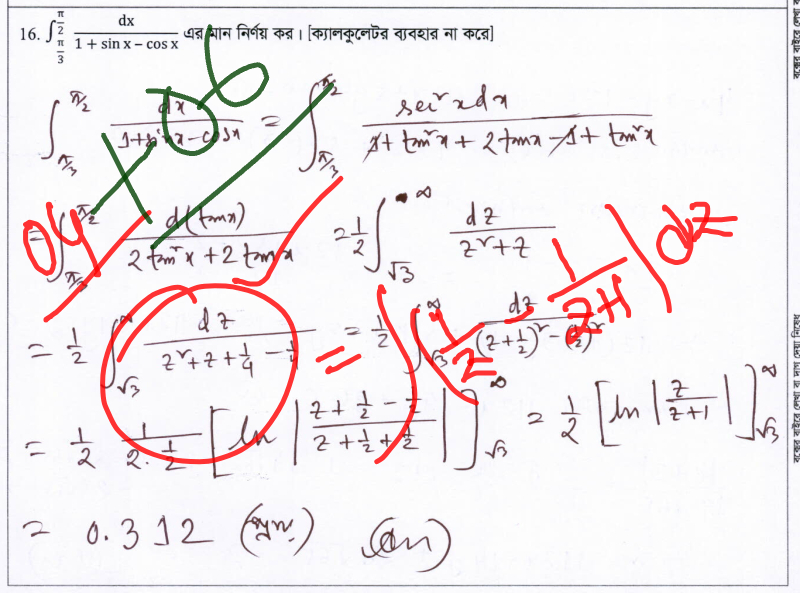 16. ∫_{π/3}^{π/2} dx/(1 + sin x – cos x) এর মান নির্ণয় কর। [ক্যালকুলেটর ব্যবহার না করে]
∫_{π/3}^{π/2} dx/(1+sin x-cos x) = ∫_{π/3}^{π/2} sec²x dx/(1+tan²x+2tanx-1+tan²x)
= ∫_{π/3}^{π/2} d(tanx)/(2tan²x+2tanx) = 1/2 ∫_{√3}^{∞} dz/(z²+z)
= 1/2 ∫_{√3}^{∞} dz/(z²+z+1/4-1/4) = 1/2 ∫_{√3}^{∞} dz/((z+1/2)²-(1/2)²)
= 1/2 1/(2·1/2) [ln |(z+1/2-1/2)/(z+1/2+1/2)|]_{√3}^{∞} = 1/2 [ln |z/(z+1)|]_{√3}^{∞}
= 0.312 (প্রায়) (Ans)
04
= ∫ (1/z - 1/(z+1)) dz